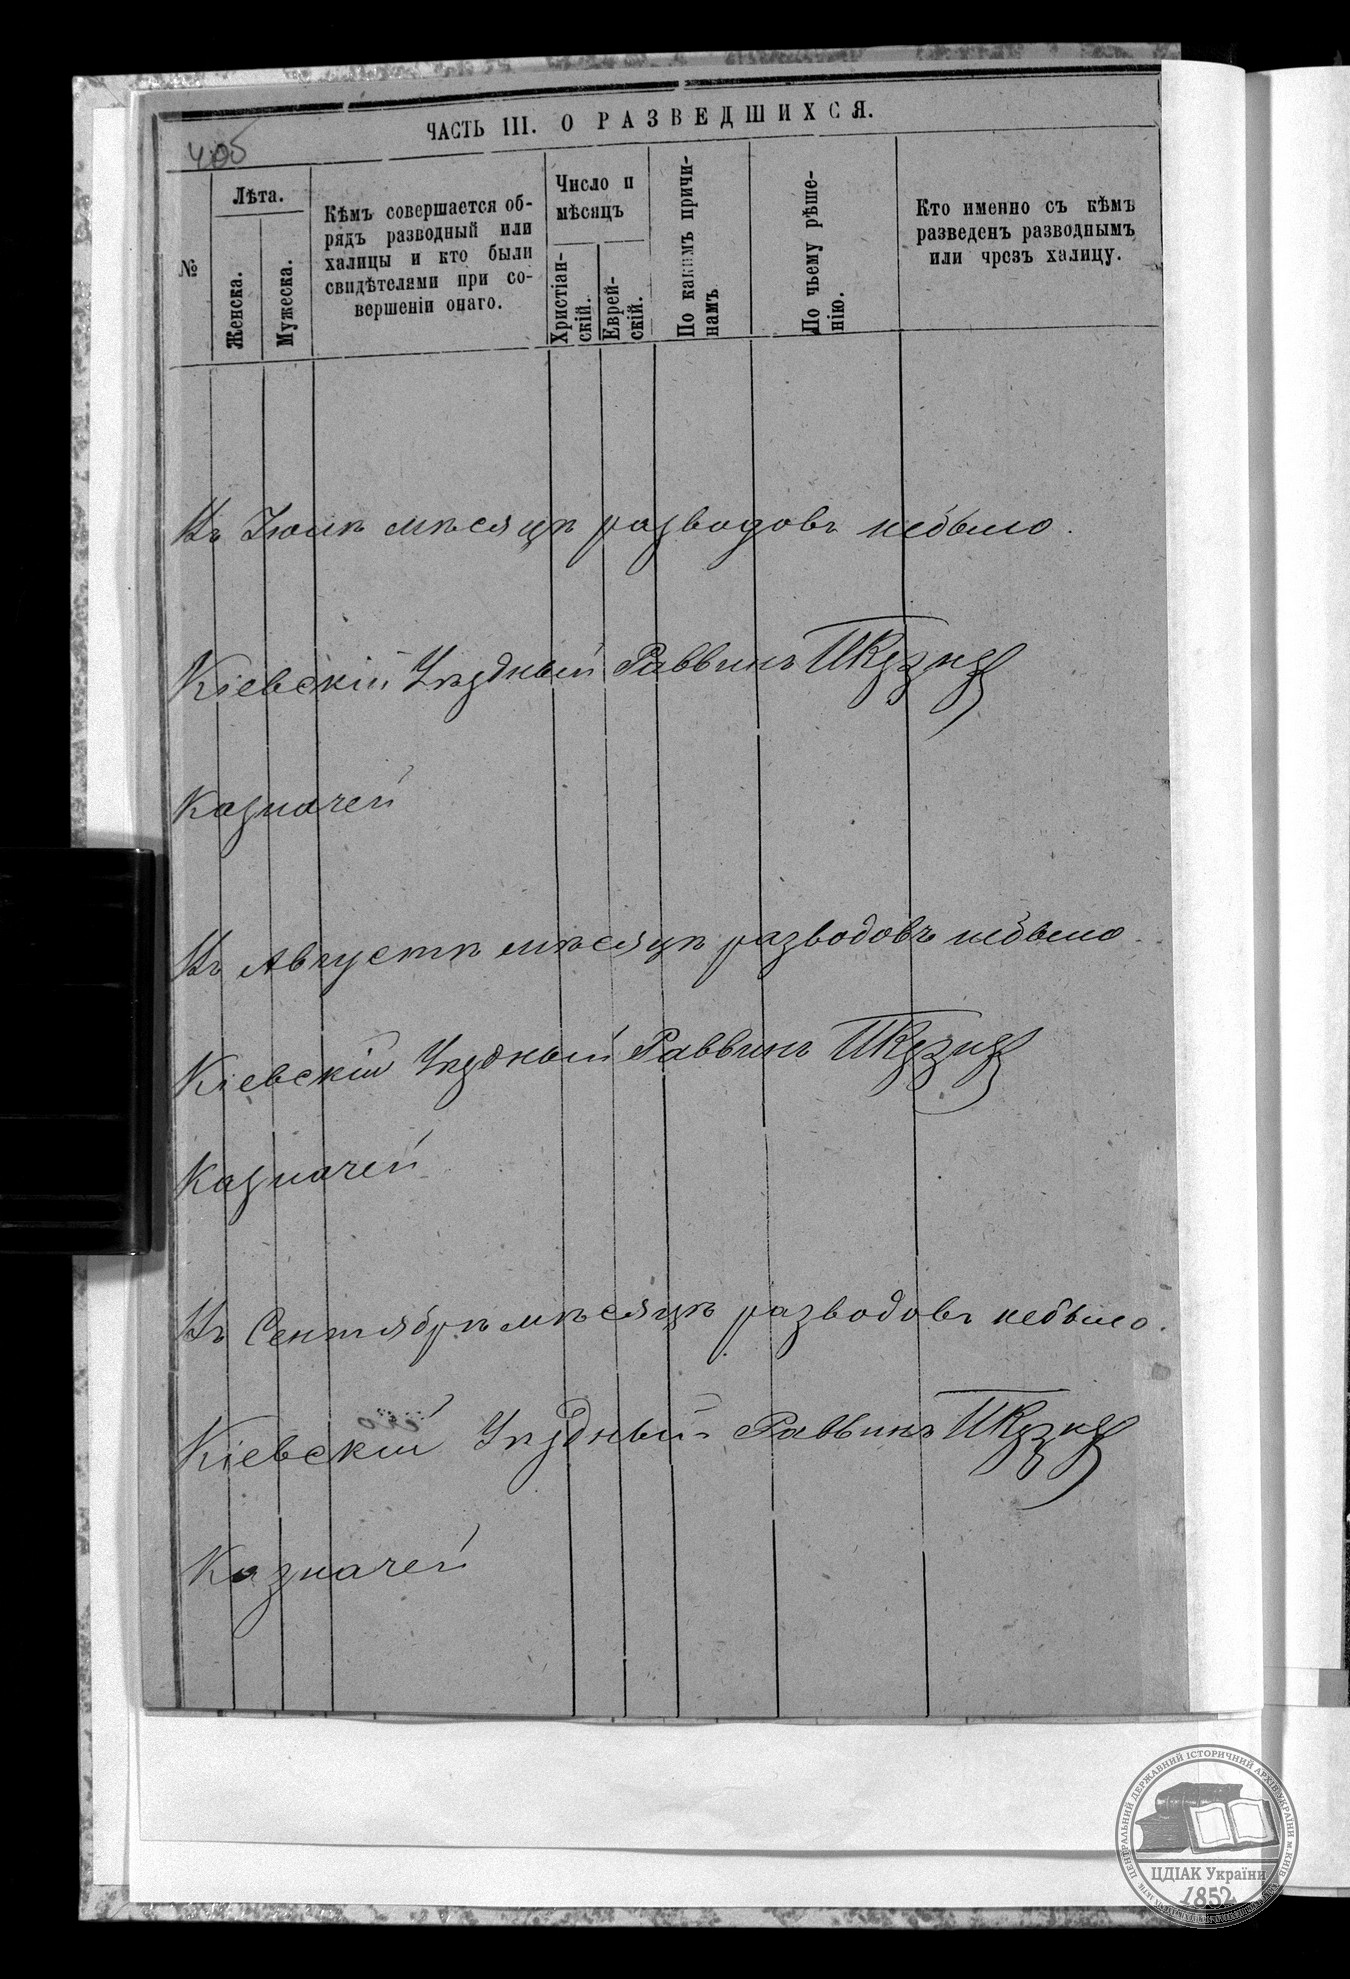 ЧАСТЬ III. О РАЗВЕДШИХСЯ.
405
№
Лѣта.
Женска.
Мужеска.
Кѣмъ совершается об-
рядъ разводный или
халицы и кто были
свидѣтелями при со-
вершеніи онаго.
Число и
мѣсяцъ
Христіан-
скій.
Еврей-
скій.
По какимъ причи-
намъ
По чьему рѣше-
нію.
Кто именно съ кѣмъ
разведенъ разводнымъ
или чрезъ халицу.
Въ Іюлѣ мѣсяцѣ разводовъ небыло.
Кіевскій Уѣздный Раввинъ
Казначей
Въ Августѣ мѣсяцѣ разводовъ небыло.
Кіевскій Уѣздный Раввинъ
Казначей
Въ Сентябрѣ мѣсяцѣ разводовъ небыло.
Кіевскій Уѣздный Раввинъ
Казначей
ЦЕНТРАЛЬНИЙ ДЕРЖАВНИЙ ІСТОРИЧНИЙ АРХІВ УКРАЇНИ м.КИЇВ
ЦДІАК України
1852